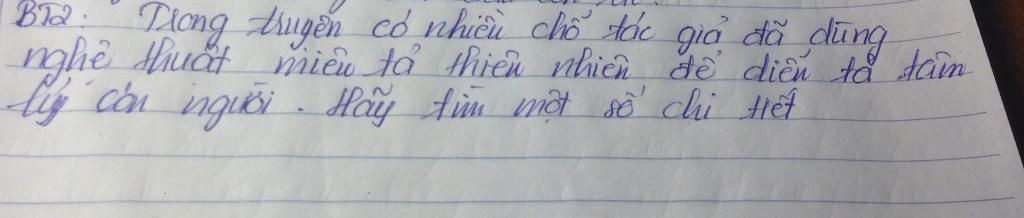 BT2: Trong truyện có nhiều chỗ tác giả đã dùng
nghệ thuật miêu tả thiên nhiên để diễn tả tâm
lý con người. Hãy tìm một số chi tiết